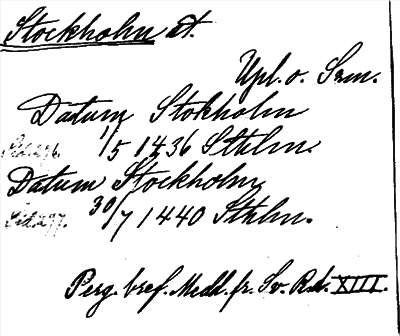 Stockholm st.
Upl. o. Srm.
Datum Stokholm
1/5 1436 Sthlm.
Datum Stockholm
30/7 1440 Sthlm.
Perg. bref. Medd. fr. Sv. RA. XIII.